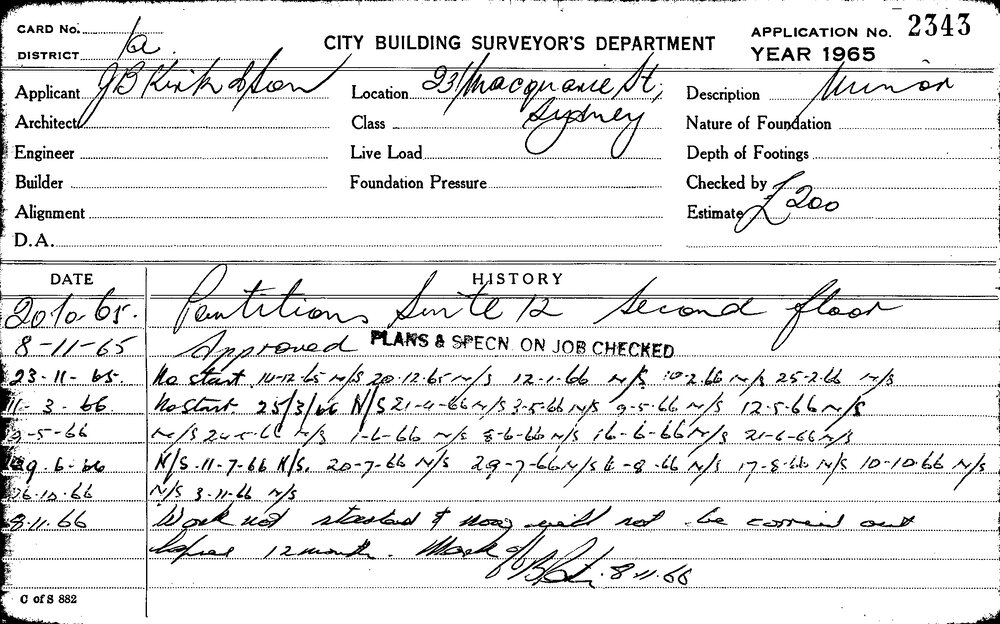 CARD No.
DISTRICT 1a.
CITY BUILDING SURVEYOR'S DEPARTMENT
APPLICATION No. 2343
YEAR 1965
Applicant J B Kirk & Son
Location 231 Macquarie St,
Sydney
Description Minor
Architect
Class
Nature of Foundation
Engineer
Live Load
Depth of Footings
Builder
Foundation Pressure
Checked by
Alignment
Estimate £200
D.A.
DATE HISTORY
20.10.65. Partitions Suite 12 Second floor
8-11-65 Approved PLANS & SPECN. ON JOB CHECKED
23-11-65. No start 14-12.65 N/S 20.12.65 N/S 12-1-66 N/S 10-2.66 N/S 25-2-66 N/S
11-3.66. No start 25/3/66 N/S 21-4-66 N/S 3-5-66 N/S 9-5-66 N/S 12-5-66 N/S
-5-66 N/S 24-5-66 N/S 1-6-66 N/S 8-6-66 N/S 16-6-66 N/S 21-6-66 N/S
29.6.66 N/S 11-7-66 N/S. 20-7-66 N/S 29-7-66 N/S -8-66 N/S 17-8-66 N/S 10-10.66 N/S
26.10.66 N/S 3-11-66 N/S
8.11.66 Work not started & may not be carried out
before 12 month. Mark off
8.11.66
C of S 882